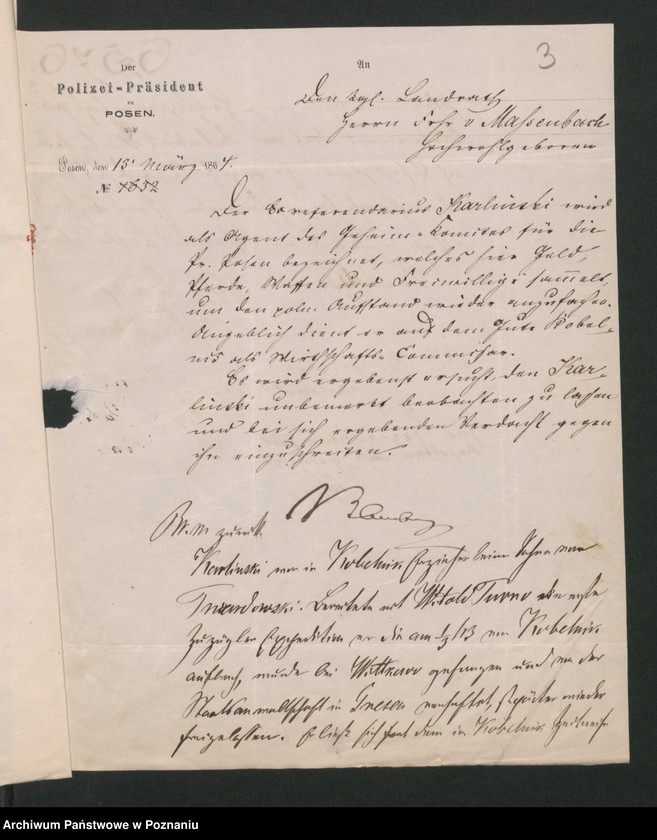 3
Der
Polizei-Präsident
zu
POSEN.
Posen, den 13 März 1864.
№ 1652
An
Den Kgl. Landrath
Herrn Frhr v Massenbach
Hochwohlgeboren
Der Exreferendarius Karlinski wird
als Agent des Geheim-Comites für die
Pr. Posen bezeichnet, welches hier Geld,
Pferde, Waffen und Freiwillige sammelt,
um den poln. Aufstand wieder anzufachen.
Angeblich dient er auf dem Gute Kobel-
nik als Wirthschafts-Commissar.
Es wird ergebenst ersucht, den Kar-
linski unbemerkt beobachten zu lassen
und bei sich ergebenden Verdacht gegen
ihn einzuschreiten.
zurück.
Karlinski war in Kobelnik Erzieher beim Sohne von
Twardowski. mit Witold Turno die erste
Zuzügler Expedition er die am von Kobelnik
aufbrach, wurde bei Wittkowo gefangen und von der
Staatsanwaltschaft in Gnesen verhaftet, später wieder
freigelassen. Er ließ sich in Kobelnik
Archiwum Państwowe w Poznaniu